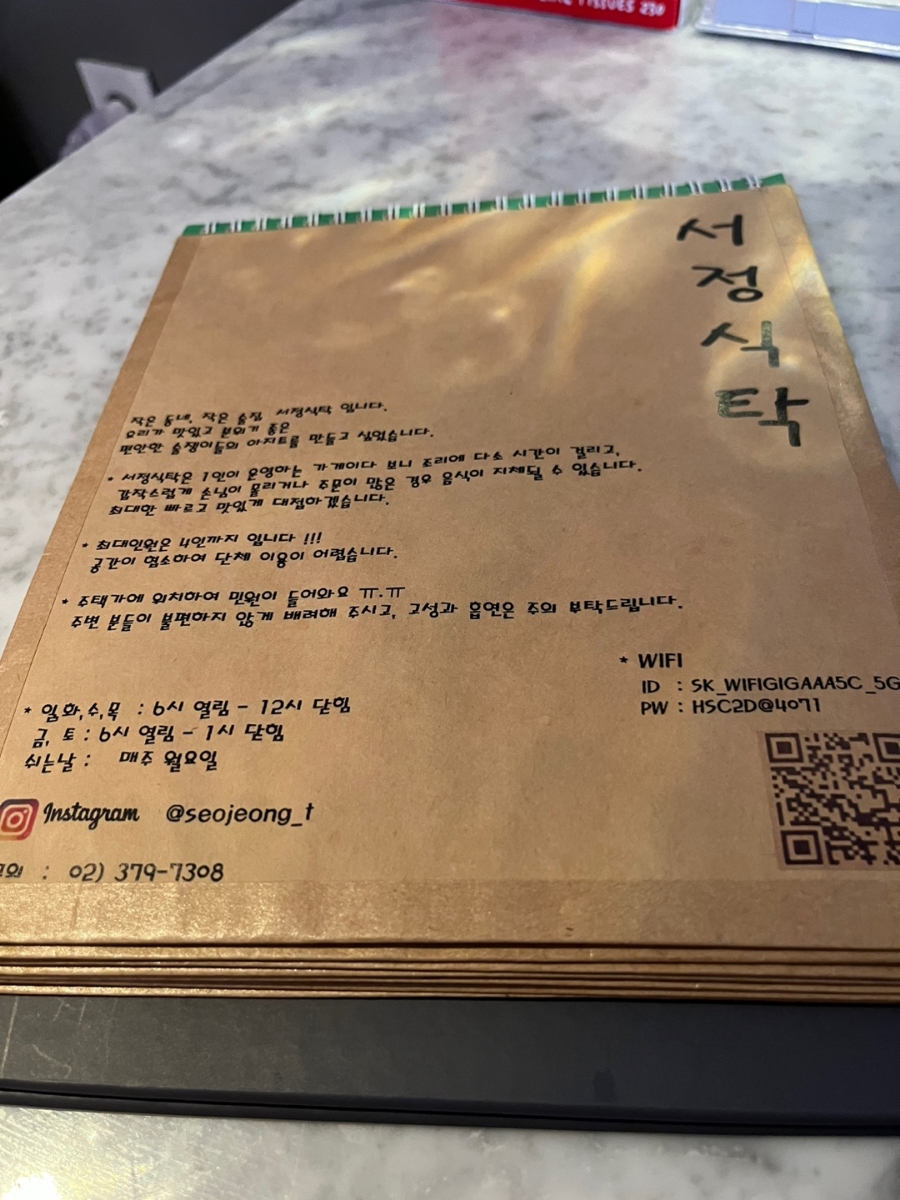 TISSUES 230
서
정
식
탁
작은 동네, 작은 술집 서정식탁 입니다.
요리가 맛있고 분위기 좋은
편안한 술쟁이들의 아지트를 만들고 싶었습니다.
* 서정식탁은 1인이 운영하는 가게이다 보니 조리에 다소 시간이 걸리고,
갑작스럽게 손님이 몰리거나 주문이 많은 경우 음식이 지체될 수 있습니다.
최대한 빠르고 맛있게 대접하겠습니다.
* 최대인원은 4인까지 입니다 !!!
공간이 협소하여 단체 이용이 어렵습니다.
* 주택가에 위치하여 민원이 들어와요 ㅠ.ㅠ
주변 분들이 불편하지 않게 배려해 주시고, 고성과 흡연은 주의 부탁드립니다.
* WIFI
ID : SK_WIFIGIGAAA5C_5G
PW : HSC2D@4071
* 일,화,수,목 : 6시 열림 - 12시 닫힘
금, 토 : 6시 열림 - 1시 닫힘
쉬는날 : 매주 월요일
Instagram @seojeong_t
: 02) 379-7308